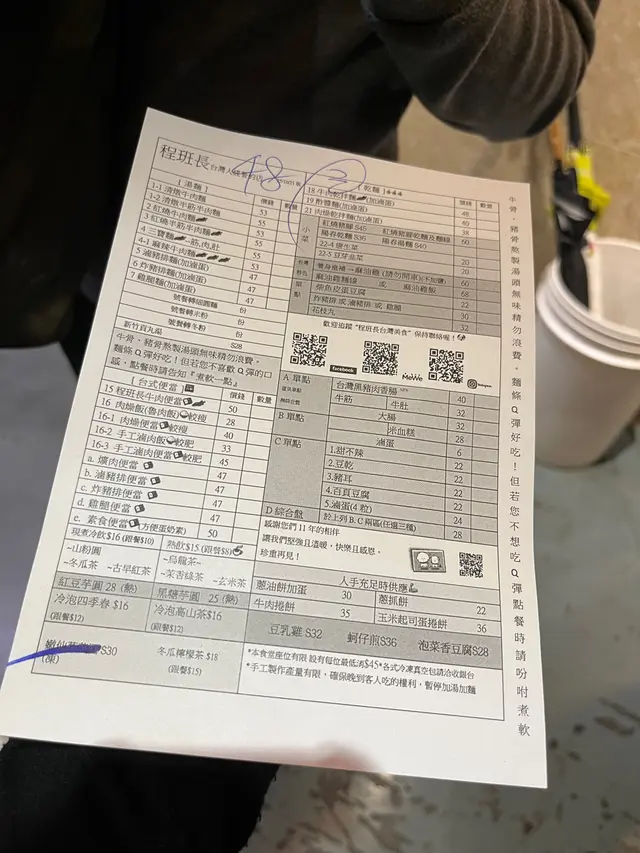 程班長台灣人
48
3
〔湯麵〕 價錢 數量
1-1 清燉牛肉麵 53
1-2 清燉半筋半肉麵 55
2 紅燒牛肉麵 53
3 紅燒半筋半肉麵 55
4 三寶麵 -筋.肉.肚 55
4-1 麻辣牛肉麵 55
5 滷豬排麵(加滷蛋) 53
6 炸豬排麵(加滷蛋) 47
7 雞腿麵(加滷蛋) 47
號餐轉細圓麵 份
號餐轉米粉 份
號餐轉冬粉 份
新竹貢丸湯 S28
牛骨、豬骨熬製湯頭無味精勿浪費。
麵條Q彈好吃！但若您不喜歡Q彈的口
感，點餐時請告知『煮軟一點』。
〔台式便當〕 價錢 數量
15 程班長牛肉便當 50
16 肉燥飯(魯肉飯) 較瘦 28
16-1 肉燥便當 較瘦 40
16-2 手工滷肉飯 較肥 33
16-3 手工滷肉便當 較肥 45
a. 爌肉便當 47
b. 滷豬排便當 47
c. 炸豬排便當 47
d. 雞腿便當 47
e. 素食便當(方便蛋奶素) 50
現煮冷飲$16 (跟餐$10)
~山粉圓
~冬瓜茶 ~古早紅茶
熱飲$15 (跟餐$8)
~烏龍茶~
~茉香綠茶 ~玄米茶
紅豆芋圓 28 (熱) 黑糖芋圓 25 (熱)
冷泡四季春 $16
(跟餐$12)
冷泡高山茶$16
(跟餐$12)
S30
(凍)
冬瓜檸檬茶 $18
(跟餐$15)
〔乾麵〕 價錢 數量
18 牛肉乾拌麵(加滷蛋) 48
19 酢醬麵(加滷蛋) 40
21 肉燥乾拌麵(加滷蛋) 38
小菜
紅燒豬腳 S45 紅燒豬腳乾麵及麵線 60
陽春乾麵 S36 陽春湯麵 S40
22-4 燙生菜 20
22-5 豆芽韭菜 20
麻油雞(請勿開車)(不加鹽) 60
麻油雞麵線 或 麻油雞飯 68
柴魚皮蛋豆腐 22
炸豬排 或 滷豬排 或 雞腿 30
花枝丸 32
歡迎追蹤 "程班長台灣美食" 保持聯絡喔！
facebook
MeWe
Instagram
A 單點 台灣黑豬肉香腸 40
牛筋 牛肚 32
B 單點 大腸 32
米血糕 28
C 單點 滷蛋 6
1.甜不辣 22
2.豆乾 22
3.豬耳 22
4.百頁豆腐 22
5.滷蛋(4 粒) 24
D 綜合盤 於上列 B. C 兩區(任選三種) 28
感謝您們 11 年的相伴
讓我們堅強且溫暖，快樂且感恩。
珍重再見！
人手充足時供應
蔥油餅加蛋 30 蔥抓餅 22
牛肉捲餅 35 玉米起司蛋捲餅 36
豆乳雞 S32 蚵仔煎S36 泡菜香豆腐S28
*本食堂座位有限 設有每位最低消$45*各式冷凍真空包請洽收銀台
*手工製作產量有限，確保晚到客人吃的權利，暫停加湯加麵
牛骨、豬骨熬製湯頭無味精勿浪費。麵條Q彈好吃！但若您不想吃Q彈點餐時請吩咐煮軟